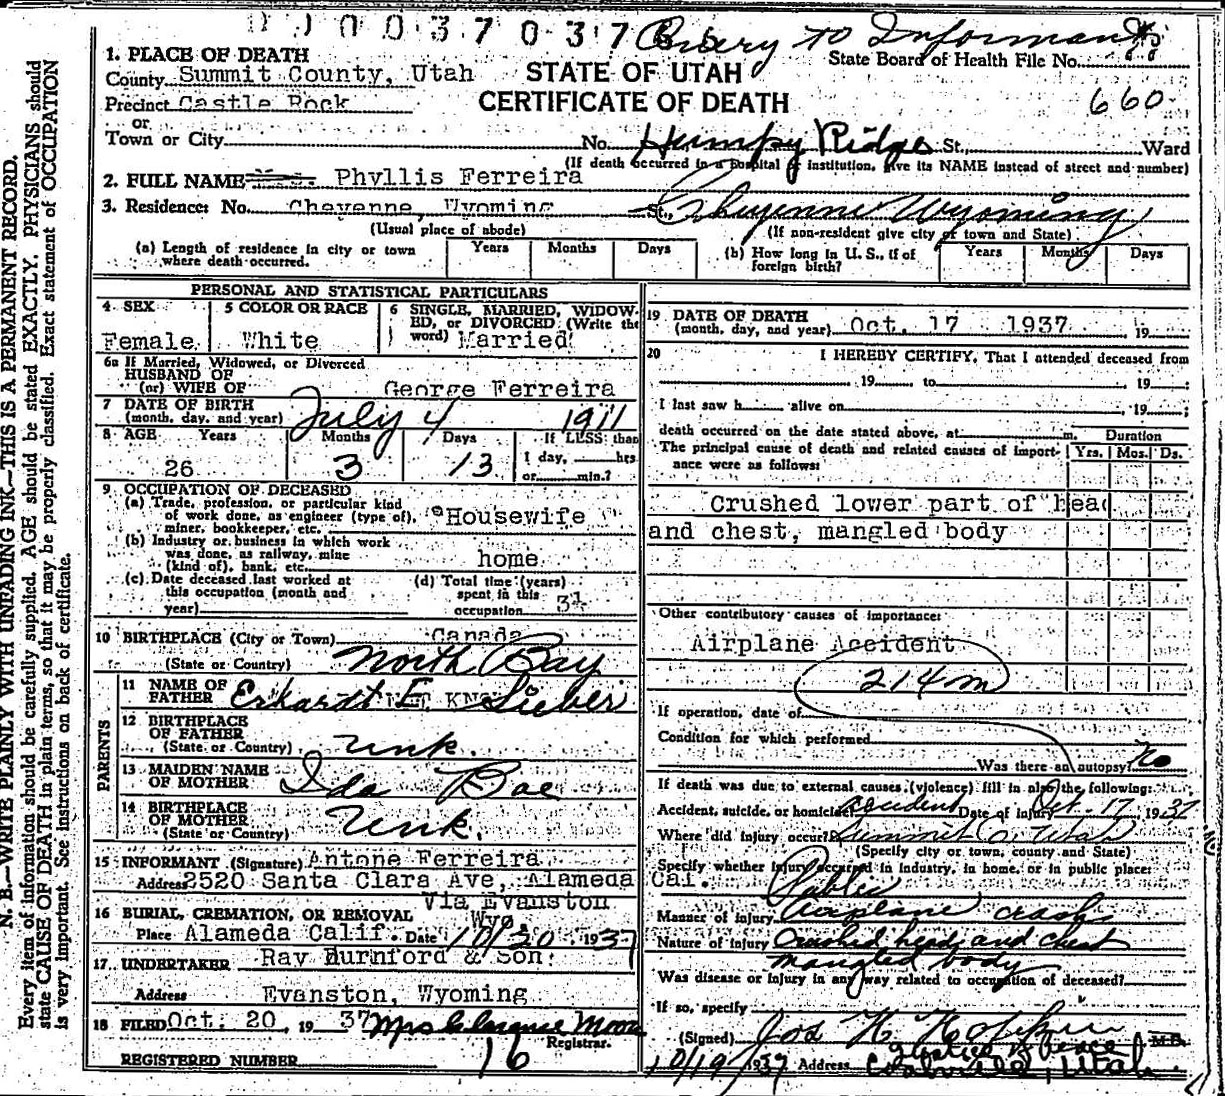 0 0 3 7 0 3 7
to Informant
1. PLACE OF DEATH
County Summit County, Utah
Precinct Castle Rock
or
Town or City
STATE OF UTAH
CERTIFICATE OF DEATH
State Board of Health File No.
660
No. Humpy Ridge St., Ward
(If death occurred in a hospital or institution, give its NAME instead of street and number)
2. FULL NAME Mrs. Phyllis Ferreira
3. Residence: No. Cheyenne, Wyoming St., Cheyenne Wyoming
(Usual place of abode) (If non-resident give city or town and State)
(a) Length of residence in city or town where death occurred. Years Months Days
(b) How long in U. S., if of foreign birth? Years Months Days
PERSONAL AND STATISTICAL PARTICULARS
4. SEX Female
5 COLOR OR RACE White
6 SINGLE, MARRIED, WIDOWED, or DIVORCED (Write the word) Married
6a If Married, Widowed, or Divorced
HUSBAND OF
(or) WIFE OF George Ferreira
7 DATE OF BIRTH
(month, day, and year) July 4 1911
8 AGE Years 26 Months 3 Days 13 If LESS than 1 day, hrs or min.?
9 OCCUPATION OF DECEASED
(a) Trade, profession, or particular kind of work done, as engineer (type of), miner, bookkeeper, etc. Housewife
(b) Industry or business in which work was done, as railway, mine (kind of), bank, etc. home
(c) Date deceased last worked at this occupation (month and year)
(d) Total time (years) spent in this occupation
10 BIRTHPLACE (City or Town) Canada
(State or Country) North Bay
PARENTS
11 NAME OF FATHER Erhardt E Sieber
NOT KNOWN
12 BIRTHPLACE OF FATHER
(State or Country) Unk.
13 MAIDEN NAME OF MOTHER Ida Bae
14 BIRTHPLACE OF MOTHER
(State or Country) Unk.
15 INFORMANT (Signature) Antone Ferreira
Address 2520 Santa Clara Ave, Alameda Cal.
Via Evanston Wyo
16 BURIAL, CREMATION, OR REMOVAL
Place Alameda Calif. Date 10/20 1937
17 UNDERTAKER Ray Burnford & Son.
Address Evanston, Wyoming
18 FILED Oct. 20, 1937 Mrs Clarence Moore
Registrar.
REGISTERED NUMBER 16
19 DATE OF DEATH
(month, day, and year) Oct. 17 1937 19
20 I HEREBY CERTIFY, That I attended deceased from
, 19 to , 19 ;
I last saw h alive on , 19 ;
death occurred on the date stated above, at m.
Duration
The principal cause of death and related causes of importance were as follows: Yrs. Mos. Ds.
Crushed lower part of head
and chest, mangled body
Other contributory causes of importance:
Airplane Accident
214m
If operation, date of
Condition for which performed
Was there an autopsy? No
If death was due to external causes (violence) fill in also the following:
Accident, suicide, or homicide? accident Date of injury Oct. 17 1937
Where did injury occur? Summit Co. Utah
(Specify city or town, county and State)
Specify whether injury occurred in industry, in home, or in public place:
Public
Manner of injury Airplane crash
Nature of injury Crushed head and chest
mangled body
Was disease or injury in any way related to occupation of deceased?
If so, specify
(Signed) M.D.
Justice of Peace
10/19 1937 Address Coalville, Utah
N. B.—WRITE PLAINLY WITH UNFADING INK—THIS IS A PERMANENT RECORD.
Every item of information should be carefully supplied. AGE should be stated EXACTLY. PHYSICIANS should
state CAUSE OF DEATH in plain terms, so that it may be properly classified. Exact statement of OCCUPATION
is very important. See instructions on back of certificate.